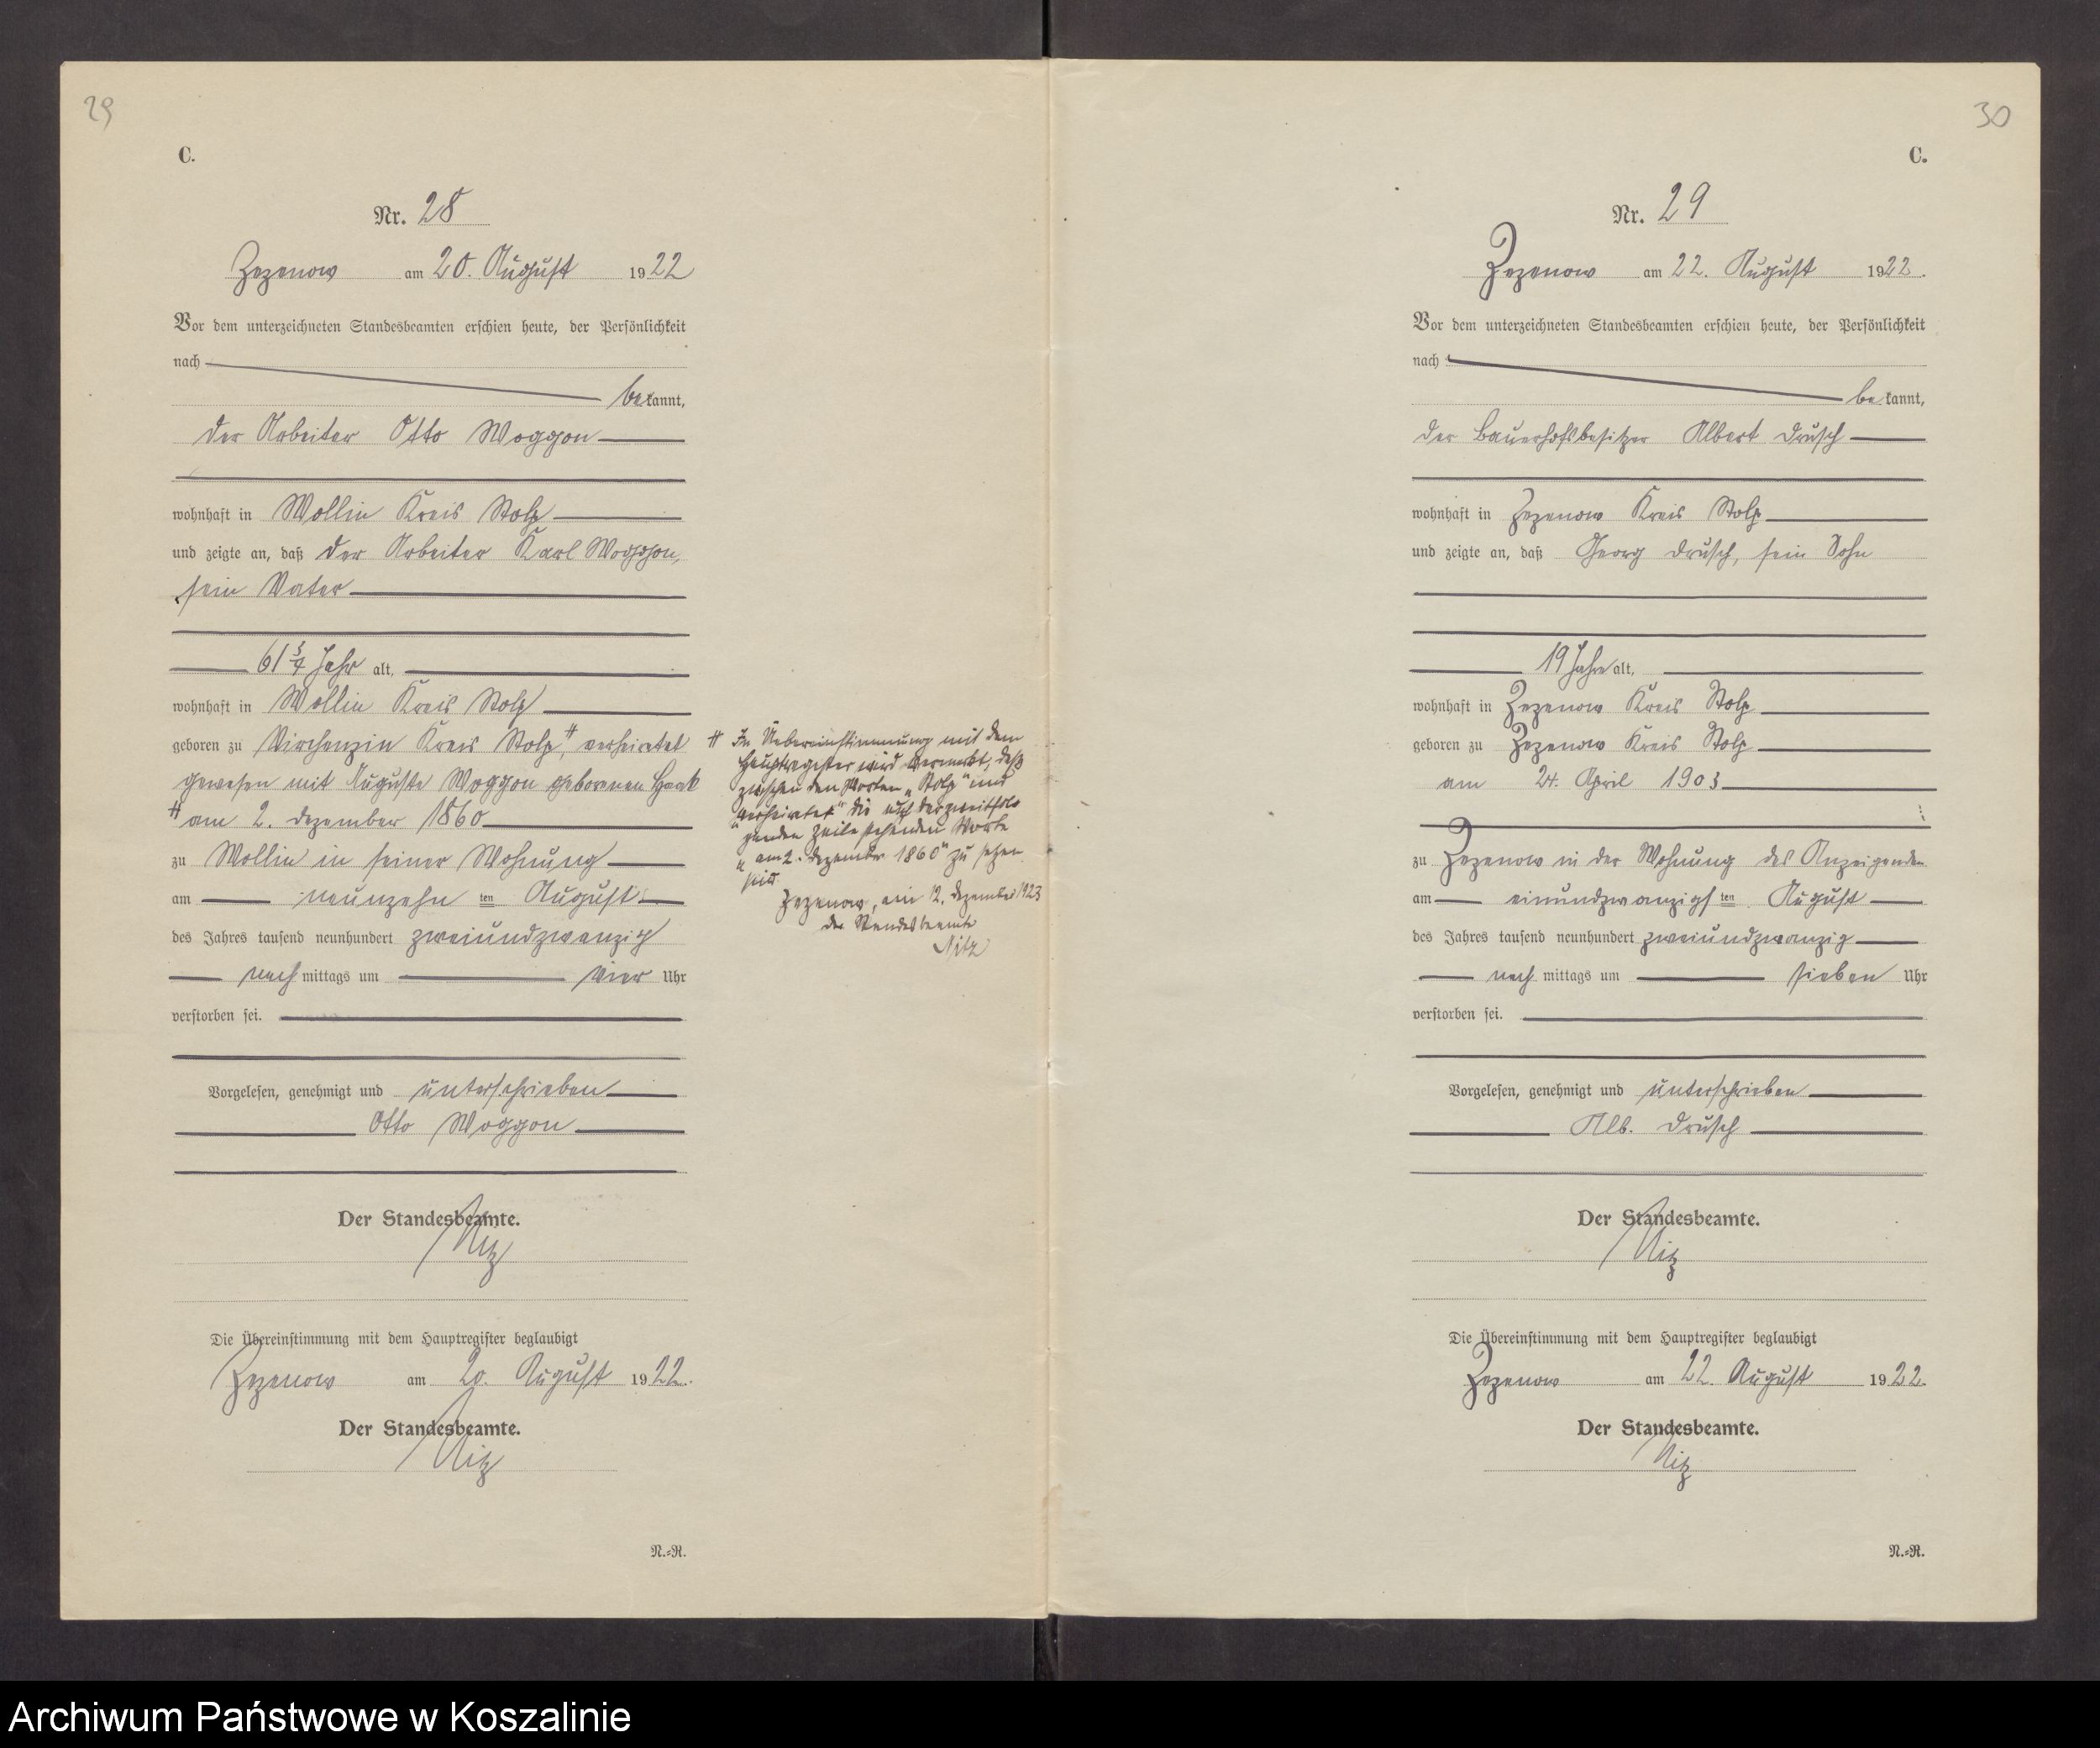 29
C.
Nr. 28
Zezenow am 20. August 1922
Vor dem unterzeichneten Standesbeamten erschien heute, der Persönlichkeit
nach
bekannt,
der Arbeiter Otto Woggon
wohnhaft in Wollin Kreis Stolp
und zeigte an, daß der Arbeiter Karl Woggon,
sein Vater
61 3/4 Jahr alt,
wohnhaft in Wollin Kreis Stolp
geboren zu Virchenzin Kreis Stolp, verheiratet
gewesen mit Auguste Woggon geborenen Haak
am 2. Dezember 1860
zu Wollin in seiner Wohnung
am neunzehn ten August
des Jahres tausend neunhundert zweiundzwanzig
nach mittags um vier Uhr
verstorben sei.
Vorgelesen, genehmigt und unterschrieben
Otto Woggon
Der Standesbeamte.
Nitz
Die Übereinstimmung mit dem Hauptregister beglaubigt
Zezenow am 20. August 1922.
Der Standesbeamte.
Nitz
N.=R.
In Uebereinstimmung mit dem
Hauptregister wird vermerkt, daß
zwischen den Worten „Stolp" und
„verheiratet" die auf der zweitfol
genden Zeile stehenden Worte
„am 2. Dezember 1860" zu setzen
sind.
Zezenow, am 12. Dezember 1923
der Standesbeamte
Nitz
30
C.
Nr. 29
Zezenow am 22. August 1922.
Vor dem unterzeichneten Standesbeamten erschien heute, der Persönlichkeit
nach
bekannt,
der Bauerhofsbesitzer Albert Drusch
wohnhaft in Zezenow Kreis Stolp
und zeigte an, daß Georg Drusch, sein Sohn
19 Jahre alt,
wohnhaft in Zezenow Kreis Stolp
geboren zu Zezenow Kreis Stolp
am 24. April 1903
zu Zezenow in der Wohnung des Anzeigenden
am einundzwanzigsten August
des Jahres tausend neunhundert zweiundzwanzig
nach mittags um sieben Uhr
verstorben sei.
Vorgelesen, genehmigt und unterschrieben
Alb. Drusch
Der Standesbeamte.
Nitz
Die Übereinstimmung mit dem Hauptregister beglaubigt
Zezenow am 22. August 1922.
Der Standesbeamte.
Nitz
N.=R.
Archiwum Państwowe w Koszalinie